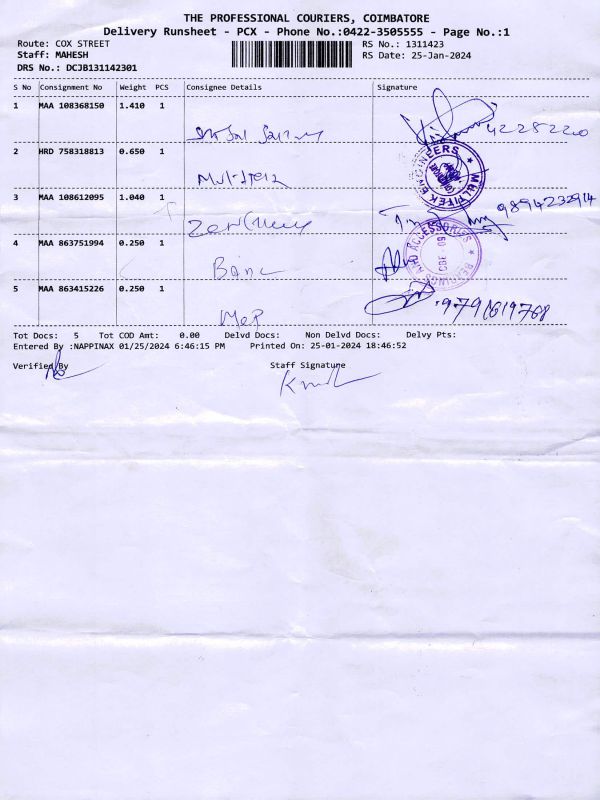 THE PROFESSIONAL COURIERS, COIMBATORE
Delivery Runsheet - PCX - Phone No.:0422-3505555 - Page No.:1
Route: COX STREET RS No.: 1311423
Staff: MAHESH RS Date: 25-Jan-2024
DRS No.: DCJB131142301
S No Consignment No Weight PCS Consignee Details Signature
1 MAA 108368150 1.410 1
2 HRD 758318813 0.650 1
MULTITEK ENGINEERS
3 MAA 108612095 1.040 1 9894232914
4 MAA 863751994 0.250 1
BEARINGS AND ACCESSORIES
CBE - 09
5 MAA 863415226 0.250 1
9791619768
Tot Docs: 5 Tot COD Amt: 0.00 Delvd Docs: Non Delvd Docs: Delvy Pts:
Entered By :NAPPINAX 01/25/2024 6:46:15 PM Printed On: 25-01-2024 18:46:52
Verified By Staff Signature